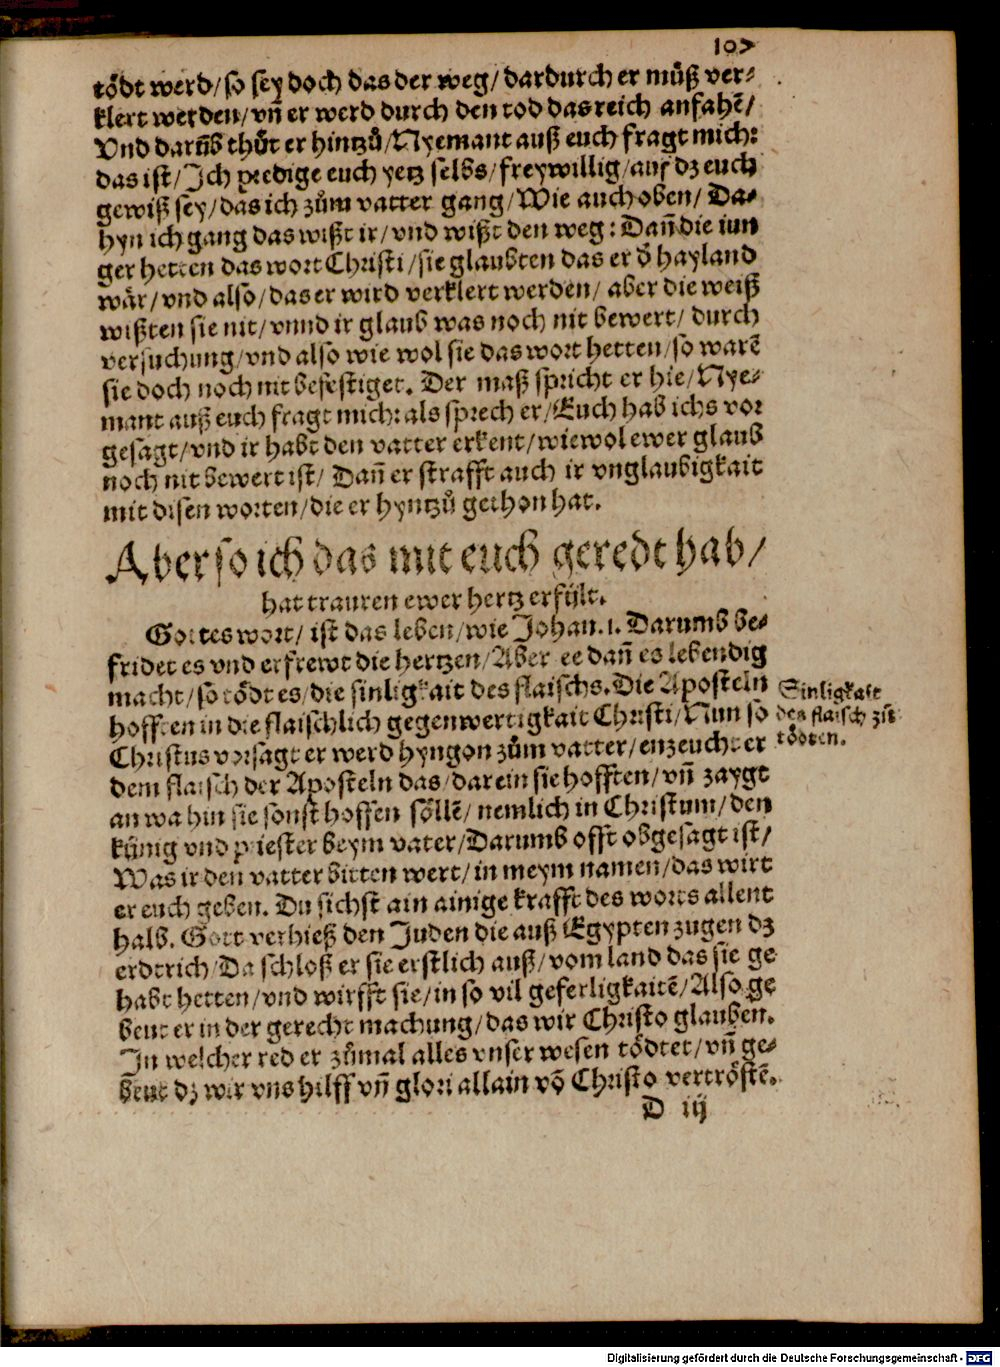 107
tödt werd/ so sey doch das der weg/ dardurch er müß ver⸗
klert werden/ vñ er werd durch den tod das reich anfahē/
Vnd darūb thůt er hintzů/ Nyemant auß euch fragt mich:
das ist/ Ich predige euch yetz selbs/ freywillig/ auf dz euch
gewiß sey/ das ich zům vatter gang/ Wie auch oben/ Da⸗
hyn ich gang das wißt ir/ vnd wißt den weg: Dañ die iun
ger hetten das wort Christi/ sie glaubten das er d̄ hayland
wär/ vnd also/ das er wird verklert werden/ aber die weiß
wißten sie nit/ vnnd ir glaub was noch nit bewert/ durch
versuchung/ vnd also wie wol sie das wort hetten/ so warē
sie doch noch nit befestiget. Der maß spricht er hie/ Nye⸗
mant auß euch fragt mich: als sprech er/ Euch hab ichs vor
gesagt/ vnd ir habt den vatter erkent/ wiewol ewer glaub
noch nit bewert ist/ Dañ er strafft auch ir vnglaubigkait
mit disen worten/ die er hyntzů gethon hat.
Aber so ich das mit euch geredt hab/
hat trauren ewer hertz erfült.
Gottes wort/ ist das leben/ wie Johan. 1. Darumb be⸗
fridet es vnd erfrewt die hertzen/ Aber ee dañ es lebendig
macht/ so tödt es/ die sinligkait des flaischs. Die Aposteln
hofften in die flaischlich gegenwertigkait Christi/ Nun so
Christus vorsagt er werd hyngon zům vatter/ enzeucht er
dem flaisch der Aposteln das/ darein sie hofften/ vñ zaygt
an wa hin sie sonst hoffen söllē/ nemlich in Christum/ den
künig vnd priester beym vater/ Darumb offt obgesagt ist/
Was ir den vatter bitten wert/ in meym namen/ das wirt
er euch geben. Du sichst ain ainige krafft des worts allent
halb. Gott verhieß den Juden die auß Egypten zugen dz
erdtrich/ Da schloß er sie erstlich auß/ vom land das sie ge
habt hetten/ vnd wirfft sie/ in so vil geferligkaitē/ Also ge
beut er in der gerecht machung/ das wir Christo glauben.
In welcher red er zůmal alles vnser wesen tödtet/ vñ ge⸗
beut dz wir vns hilff vñ glori allain vō Christo vertröstē.
D iij
Sinligkait
des flaisch zů
tödten.
Digitalisierung gefördert durch die Deutsche Forschungsgemeinschaft - DFG